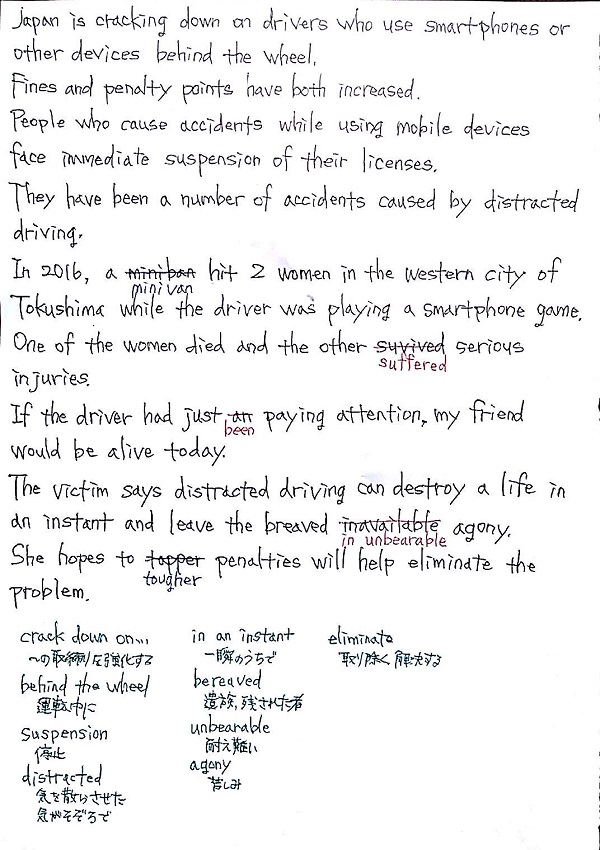 Japan is cracking down on drivers who use smartphones or
other devices behind the wheel.
Fines and penalty points have both increased.
People who cause accidents while using mobile devices
face immediate suspension of their licenses.
They have been a number of accidents caused by distracted
driving.
In 2016, a miniban hit 2 women in the western city of
minivan
Tokushima while the driver was playing a smartphone game.
One of the women died and the other suvived serious
suffered
injuries.
If the driver had just an paying attention, my friend
been
would be alive today.
The victim says distracted driving can destroy a life in
an instant and leave the breaved inavailable agony.
in unbearable
She hopes to topper penalties will help eliminate the
tougher
problem.
crack down on...
〜の取締りを強化する
behind the wheel
運転中に
suspension
停止
distracted
気を散らさせた
気がそぞろで
in an instant
一瞬のうちで
bereaved
遺族, 残された者
unbearable
耐え難い
agony
苦しみ
eliminate
取り除く, 解決する